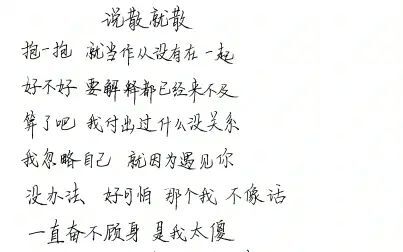 说散就散
抱一抱 就当作从没有在一起
好不好 要解释都已经来不及
算了吧 我付出过什么没关系
我忽略自己 就因为遇见你
没办法 好可怕 那个我 不像话
一直奋不顾身 是我太傻